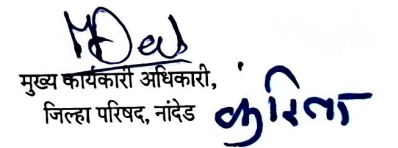 मुख्य कार्यकारी अधिकारी,
जिल्हा परिषद, नांदेड
करिता